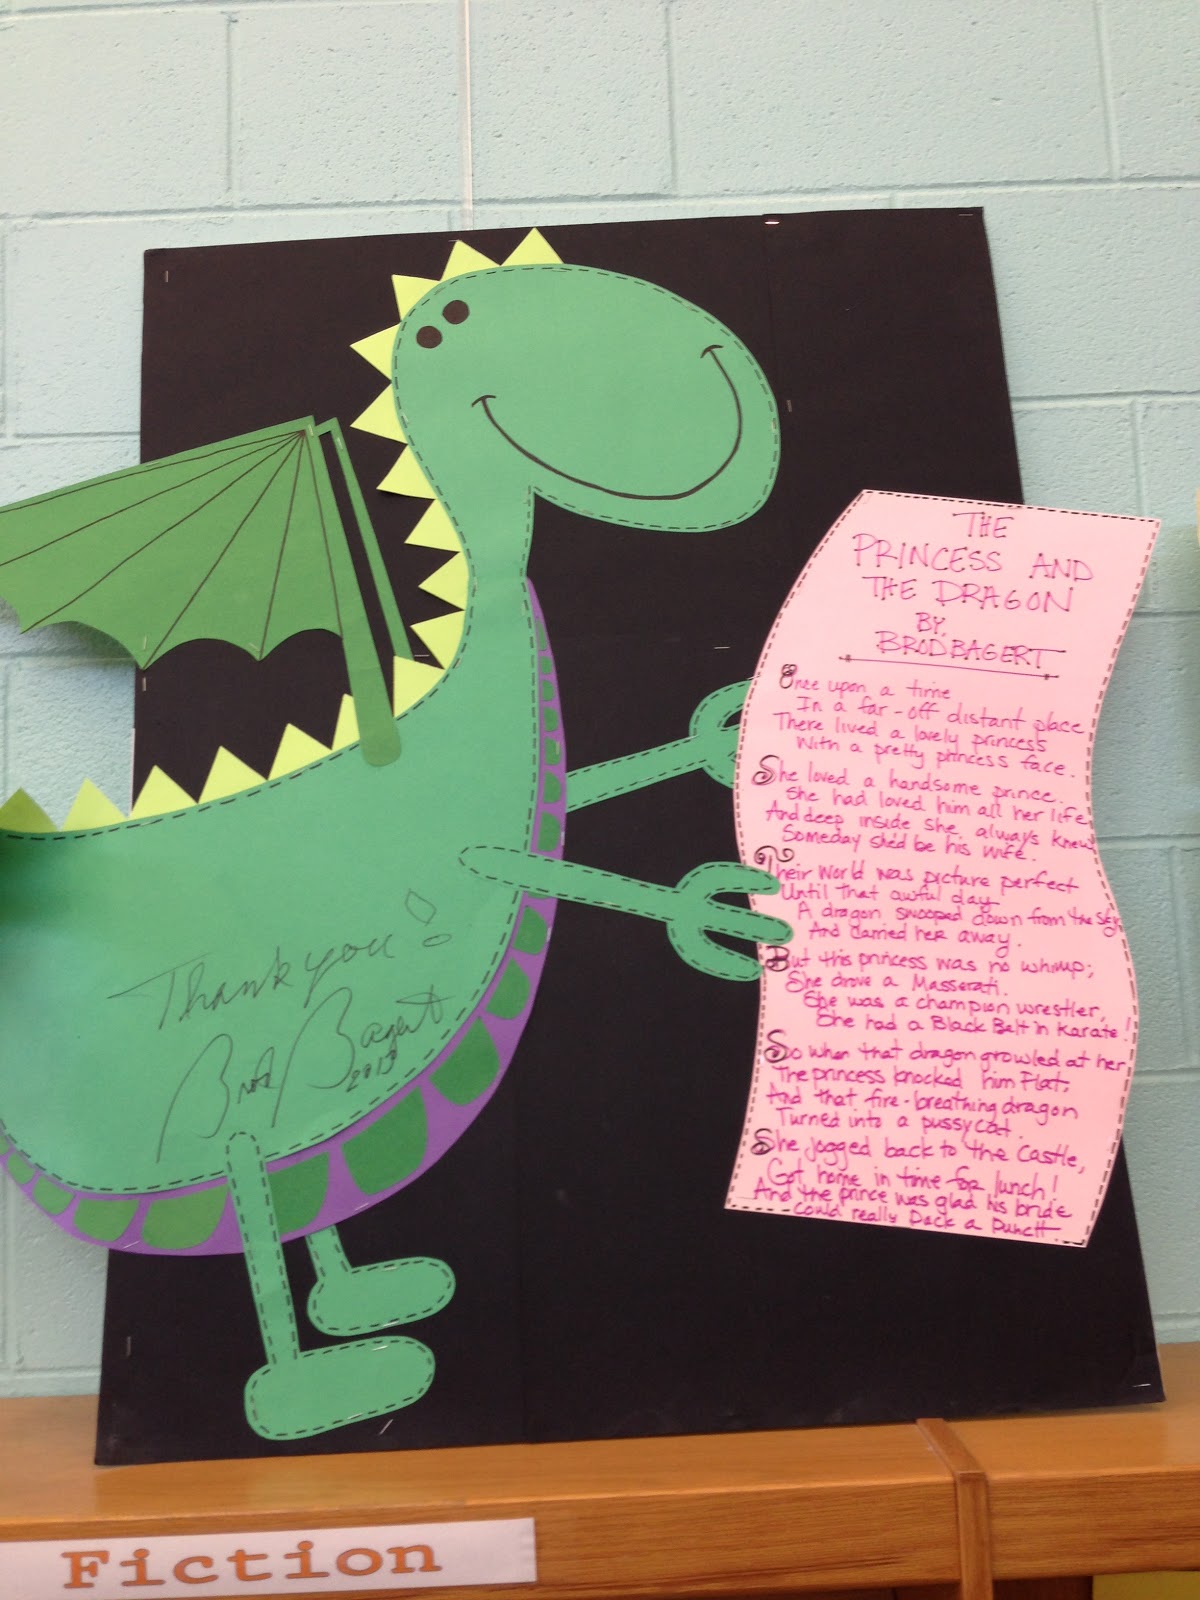 THE
PRINCESS AND
THE DRAGON
BY
BROD BAGERT
Once upon a time
In a far-off distant place
There lived a lovely princess
With a pretty princess face.
She loved a handsome prince.
She had loved him all her life,
And deep inside she always knew
Someday she'd be his wife.
Their world was picture perfect
Until that awful day
A dragon swooped down from the sky
And carried her away.
But this princess was no whimp;
She drove a Masserati.
She was a champion wrestler,
She had a Black Belt in Karate!
So when that dragon growled at her
The princess knocked him flat,
And that fire-breathing dragon
Turned into a pussycat.
She jogged back to the castle,
Got home in time for lunch!
And the prince was glad his bride
could really pack a punch.
Thank you!
Brod Bagert
2013
Fiction